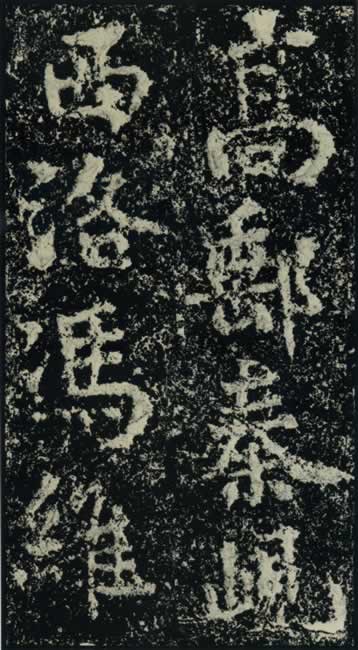 高郵秦峴
西洛馮維